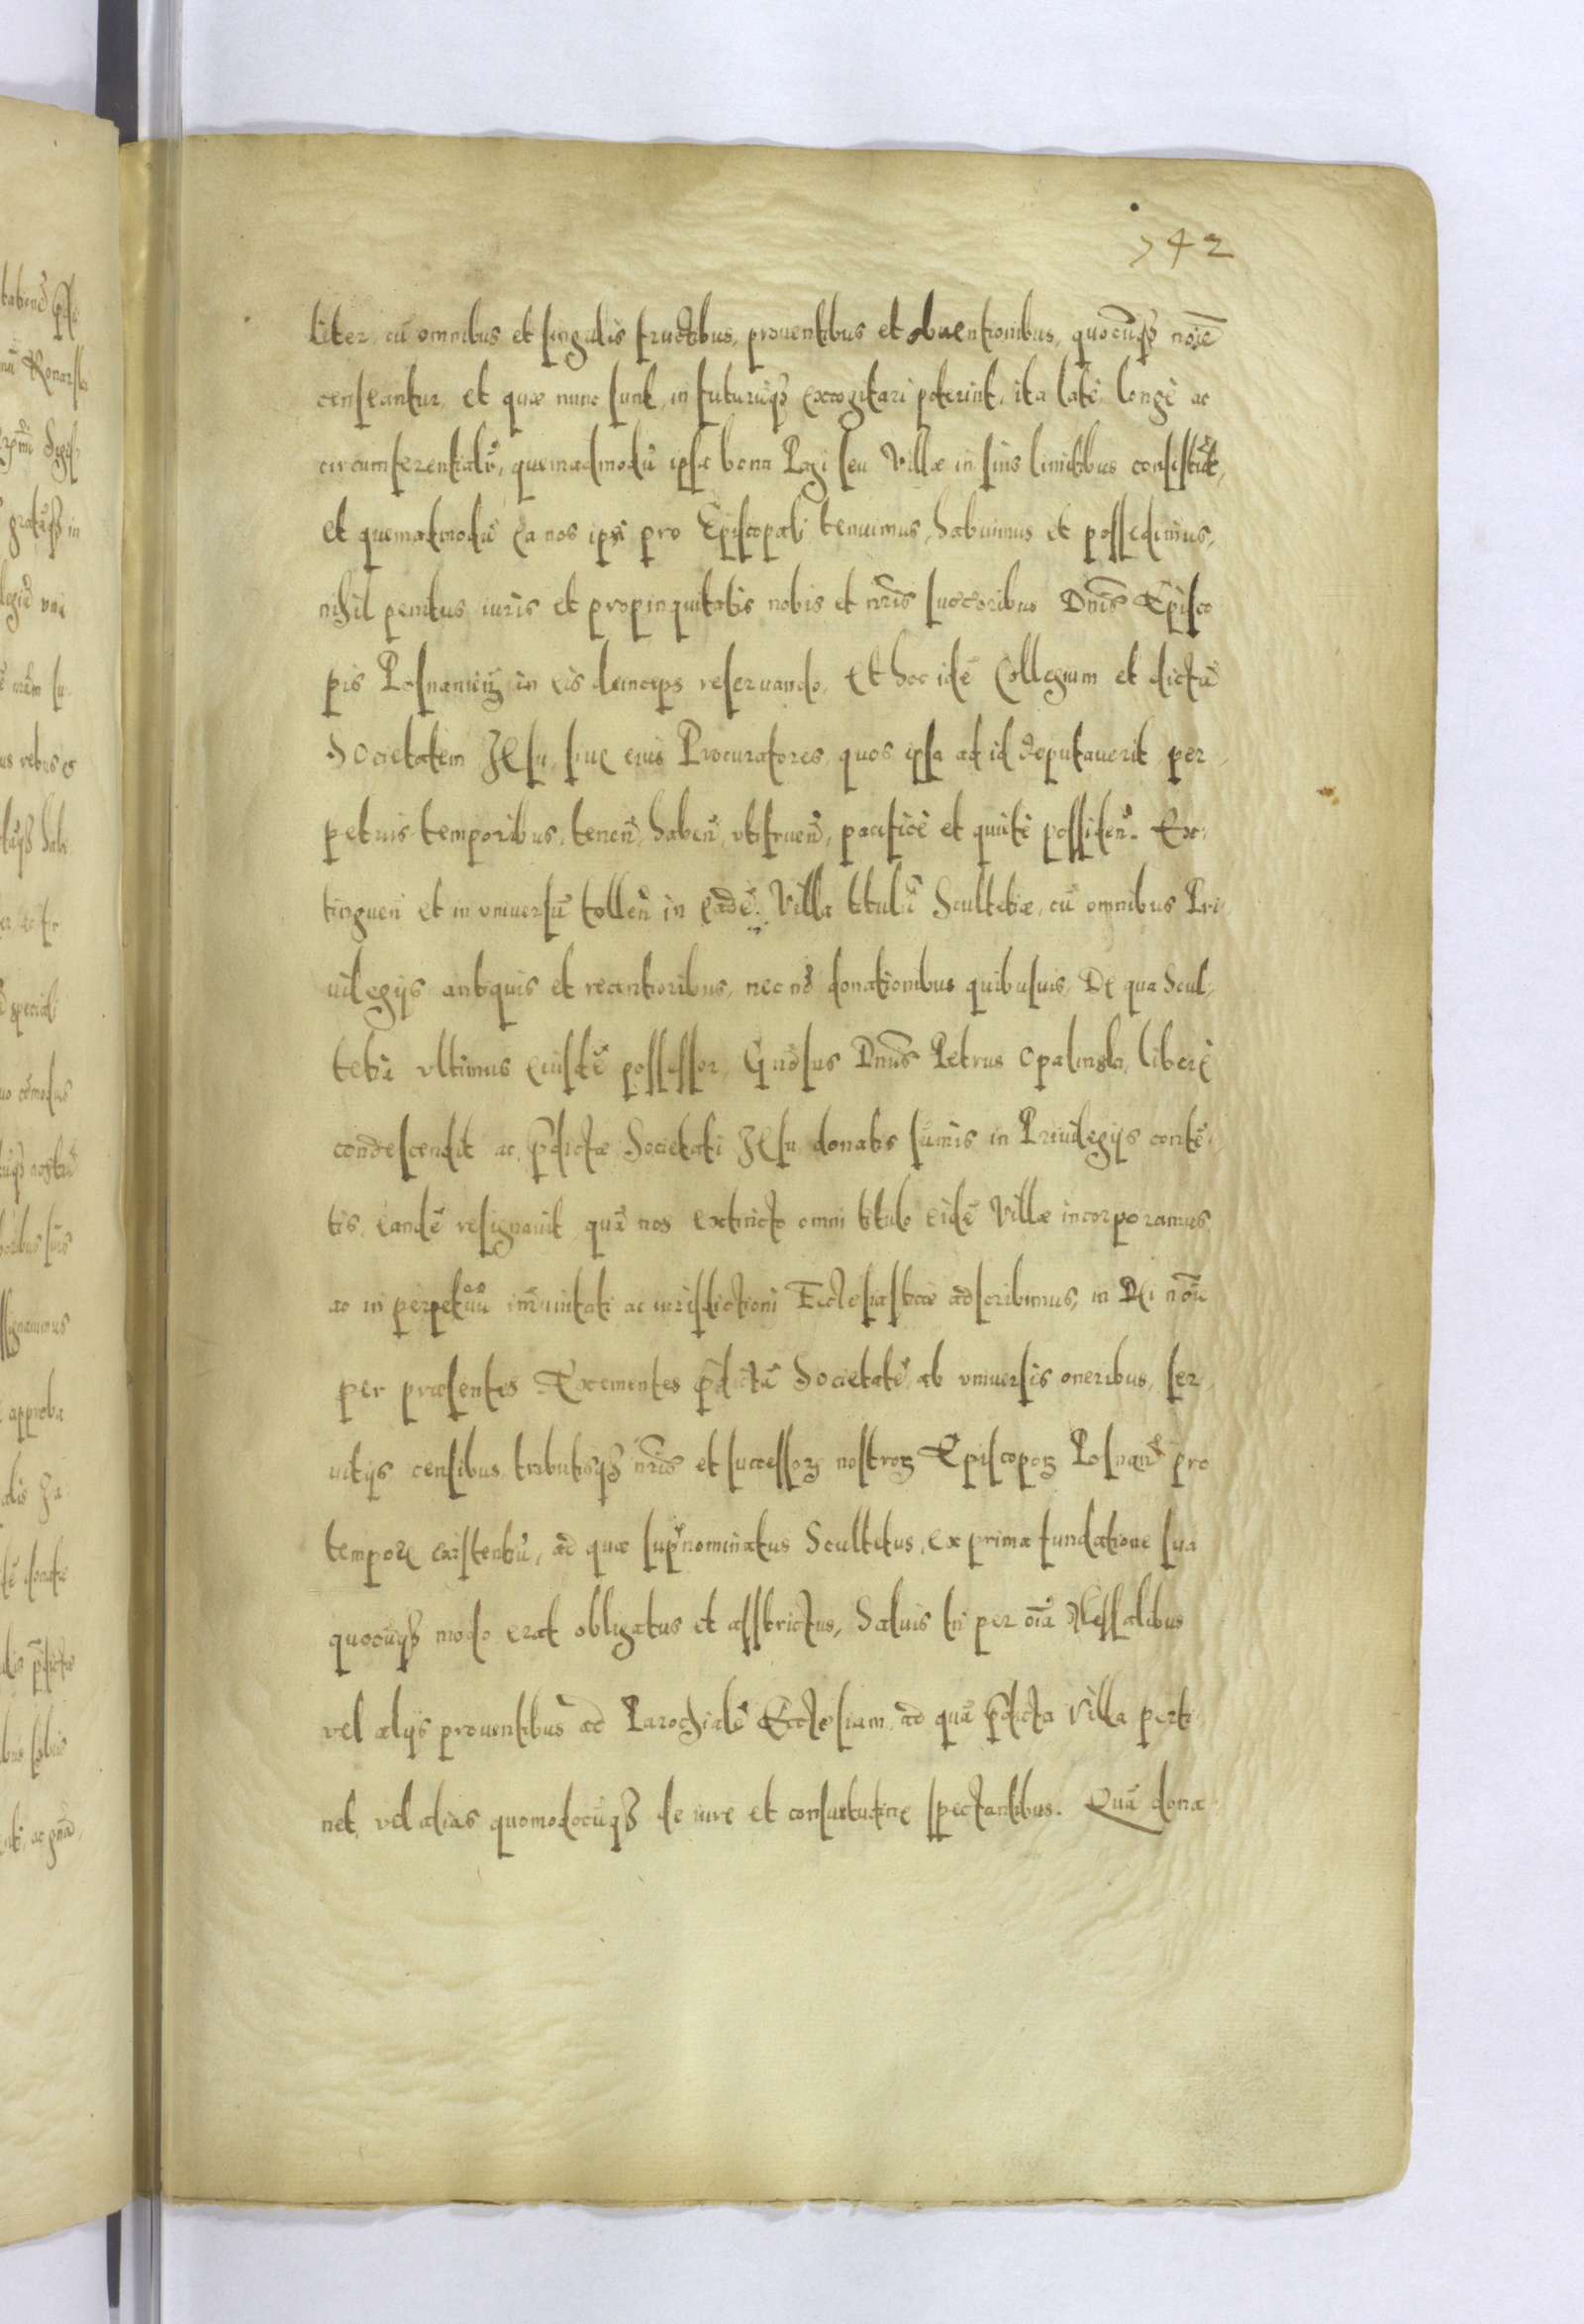 742
liter, cū omnibus et singulis fructibus, prouentibus et obuentionibus, quocūq₃ noīe
censeantur, et quæ nunc sunt, in futurūq₃ excogitari poterint, ita latè longè ac
circumferentialr̃, quemadmodū ipsa bona Pagi seu Villæ in suis limitibus consistūt,
et quemadmodū ea nos ipsi pro Episcopali tenuimus, habuimus et possedimus,
nihil penitus iuris et propinquitatis nobis et nr̃is succ̃oribus Dnĩs Episco
pis Posnanieñ in eis deinceps reseruando. Et hoc idē Collegium et dictā
Societatem JEsu, siue eius Procuratores, quos ipsa ad id deputauerit, per,
petuis temporibus, teneñ, habeñ, vtifrueñ, pacificè et quietè possideñ. Ex,
tingueñ et in vniuersū tolleñ in eadē Villa titulū Scultetiæ, cū omnibus Pri,
uilegijs antiquis et recentioribus, nec nō donationibus quibusuis. De qua Scul,
tetia vltimus eiusdē possessor, Gñosus Dnũs Petrus Opalinski, liberè
condescendit ac p̃dictæ Societati JEsu donatis sūmis in Priuilegijs contē,
tis, eandē resignauit, quā nos extincto omni titulo eidē Villæ incorporamus,
ac in perpetuū im̄unitati ac iurisdictioni Ecclesiasticæ adscribimus, in Dei noīe
per præsentes Eximentes p̃dictā Societatē ab vniuersis oneribus, ser,
uitijs censibus tributisq₃ nr̃is et successoꝝ nostroꝝ Episcopoꝝ Posnañ pro
tempore existentiū, ad quæ sup̃nominatus Scultetus, ex prima fundatione sua
quocūq₃ modo erat obligatus et asstrictus, Saluis tñ per oīa Messalibus
vel alijs prouentibus ad Parochialē Ecclesiam, ad quā p̃dicta Villa perti,
net, vel alias quomodocūq₃ de iure et consuetudine spectantibus. Quā dona